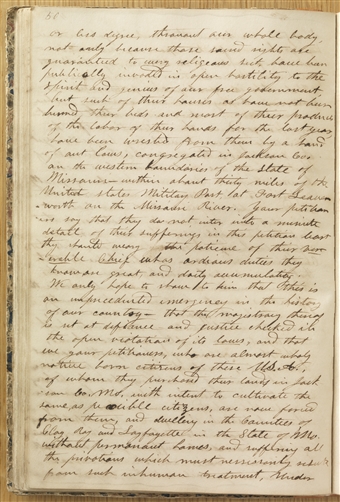 56
or less degree, throughout our whole body
not only because those sacred rights are
guarantied to every religious sect have been
publically invaded in open hostility to the
spirit and genius of our free government
but such of their houses as have not been
burned their beds and most of their produce
of the labor of their hands for the last year
have been wrested from them by a band
of out laws, congregated in Jackson Co.
on the western boundaries of the State of
Missouri within about thirty miles of the
United States Military Post at Fort Leaven
worth on the Missouri River. Your petition
ers say that they do not enter into a minute
detail of their sufferings in this petition least
they should weary the patience of their ven
erable Chief whose arduous duties they
know are great, and daily accumulating.
We only hope to show to him that this is
an unprecedented emergency in the history
of our country – that the magistracy thereof
is set at defiance and justice checked in
the open violation of its laws, and that
we your petitioners, who are almost wholy
native born citizens of these U.S.A.,
of whom they purchased their lands in Jack
son Co. Mo. with intent to cultivate the
same as peacible citizens, are now forced
from them, and dwelling in the Counties of
Clay, Ray and Lafayette in the State of Mo.
without permanent homes, and suffering all
the privations which must necessarily
from such inhuman treatment, Under